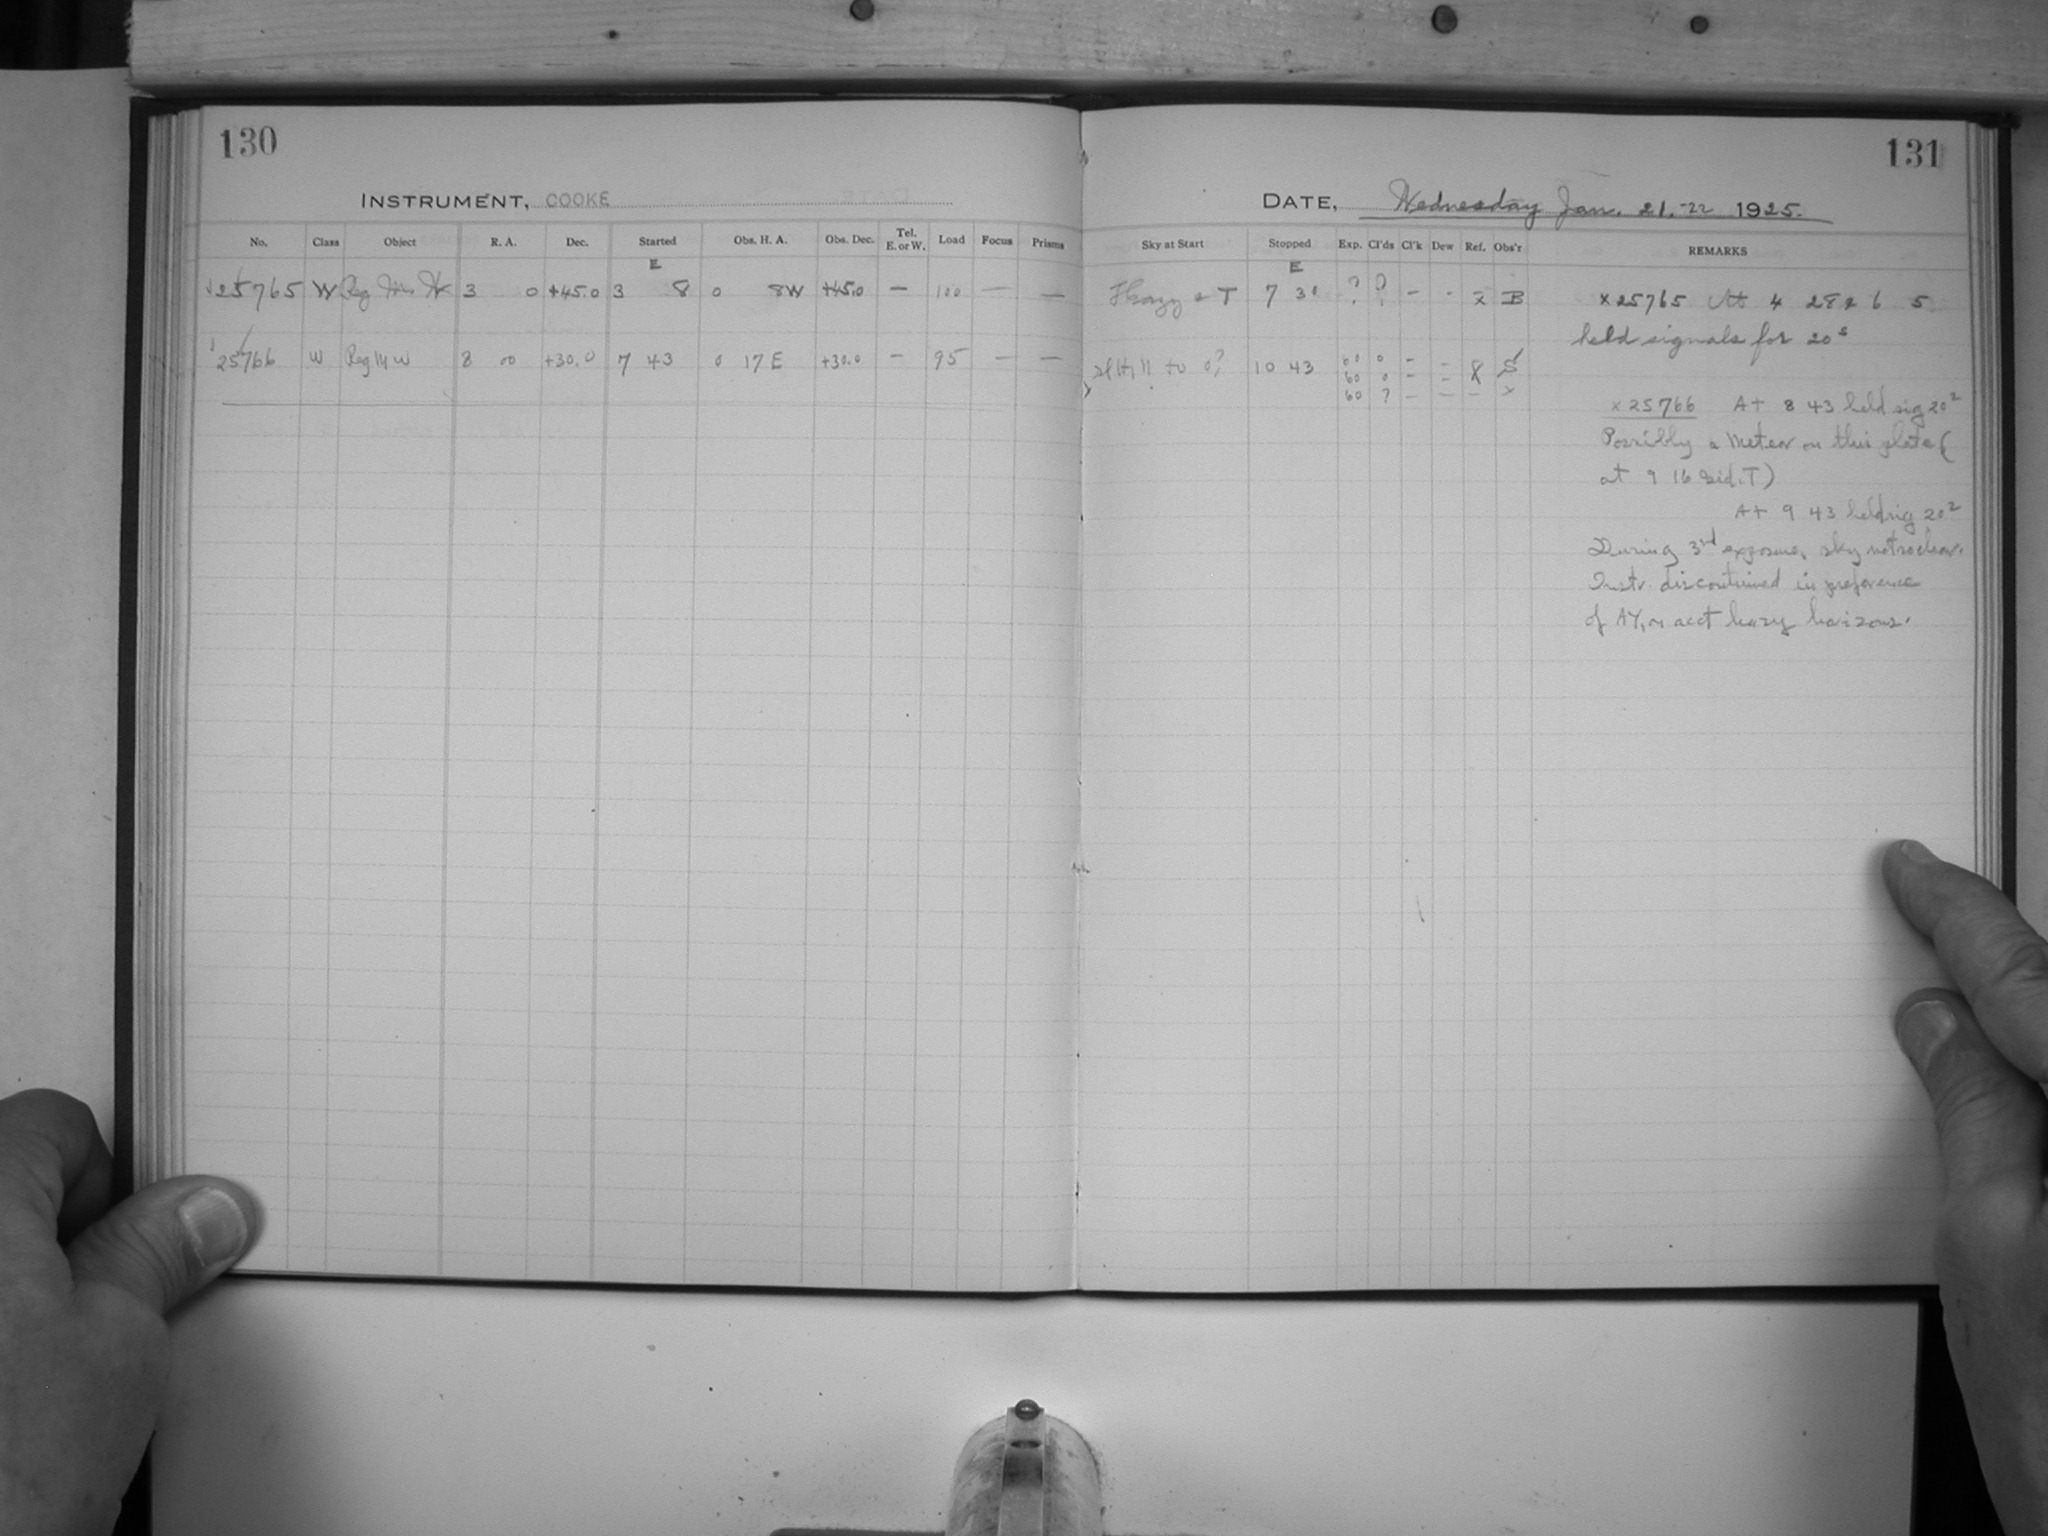 130
INSTRUMENT, COOKE
No. Class Object R. A. Dec. Started Obs. H. A. Obs. Dec. Tel. E. or W. Load Focus Prisms
E
25765 W Reg 3 0 +45.0 3 8 0 8W +45.0 — 100 — —
25766 W Reg M W 8 00 +30.0 7 43 0 17 E +30.0 — 95 — —
131
DATE, Wednesday Jan. 21.-22 1925.
Sky at Start Stopped Exp. Cl'ds Cl'k Dew Ref. Obs'r REMARKS
E
T 7 30 ? ? - - x B
10 43 60 0 - -
60 0 - -
60 ? - - - x
x 25765 At 4 28 2 6 5
held signals for 20s
x 25766 At 8 43 held sig 20
Possibly a Meteor on this plate (
at 9 16 Sid. T)
At 9 43 held sig 20
During 3rd exposure, sky not so clear.
Instr. discontinued in preference
of AY, on acct hazy horizons.